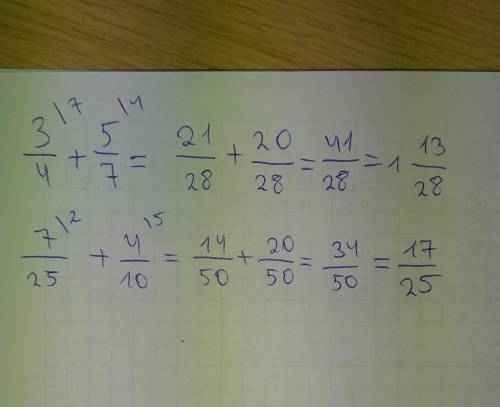 3/4 \7 + 5/7 \4 = 21/28 + 20/28 = 41/28 = 1 13/28
7/25 \2 + 4/10 \5 = 14/50 + 20/50 = 34/50 = 17/25